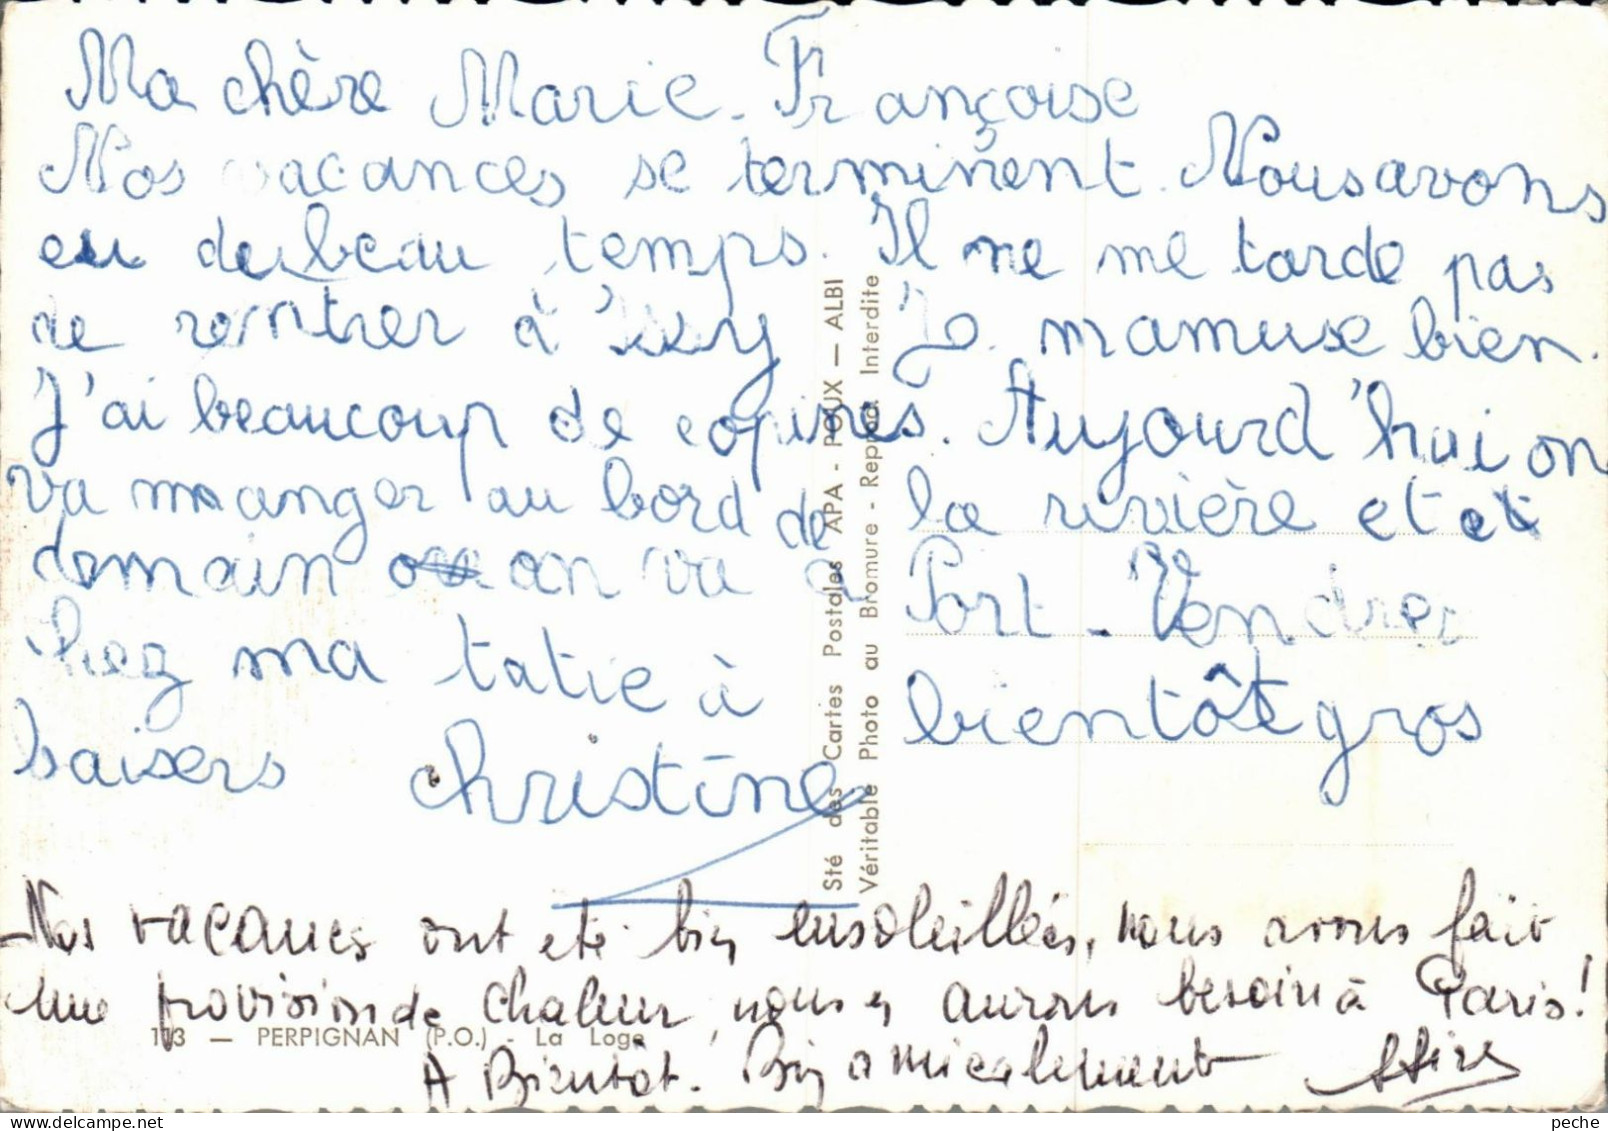 Ma chère Marie-Françoise
Nos vacances se terminent. Nous avons
eu de beau temps. Il ne me tarde pas
de rentrer à Issy Je mamuse bien.
J'ai beaucoup de copines. Aujourd'hui on
va manger au bord de la rivière et et
demain on va à Port-Vendres
chez ma tatie à bientôt gros
baisers Christine
Nos vacances ont été bien ensoleillées, nous avons fait
une provision de chaleur, nous en aurons besoin à Paris!
A Bientôt. Bien amicalement
113 — PERPIGNAN (P.O.) - La Loge
Sté des Cartes Postales APA - POUX — ALBI
Véritable Photo au Bromure - Reprod. Interdite
peche